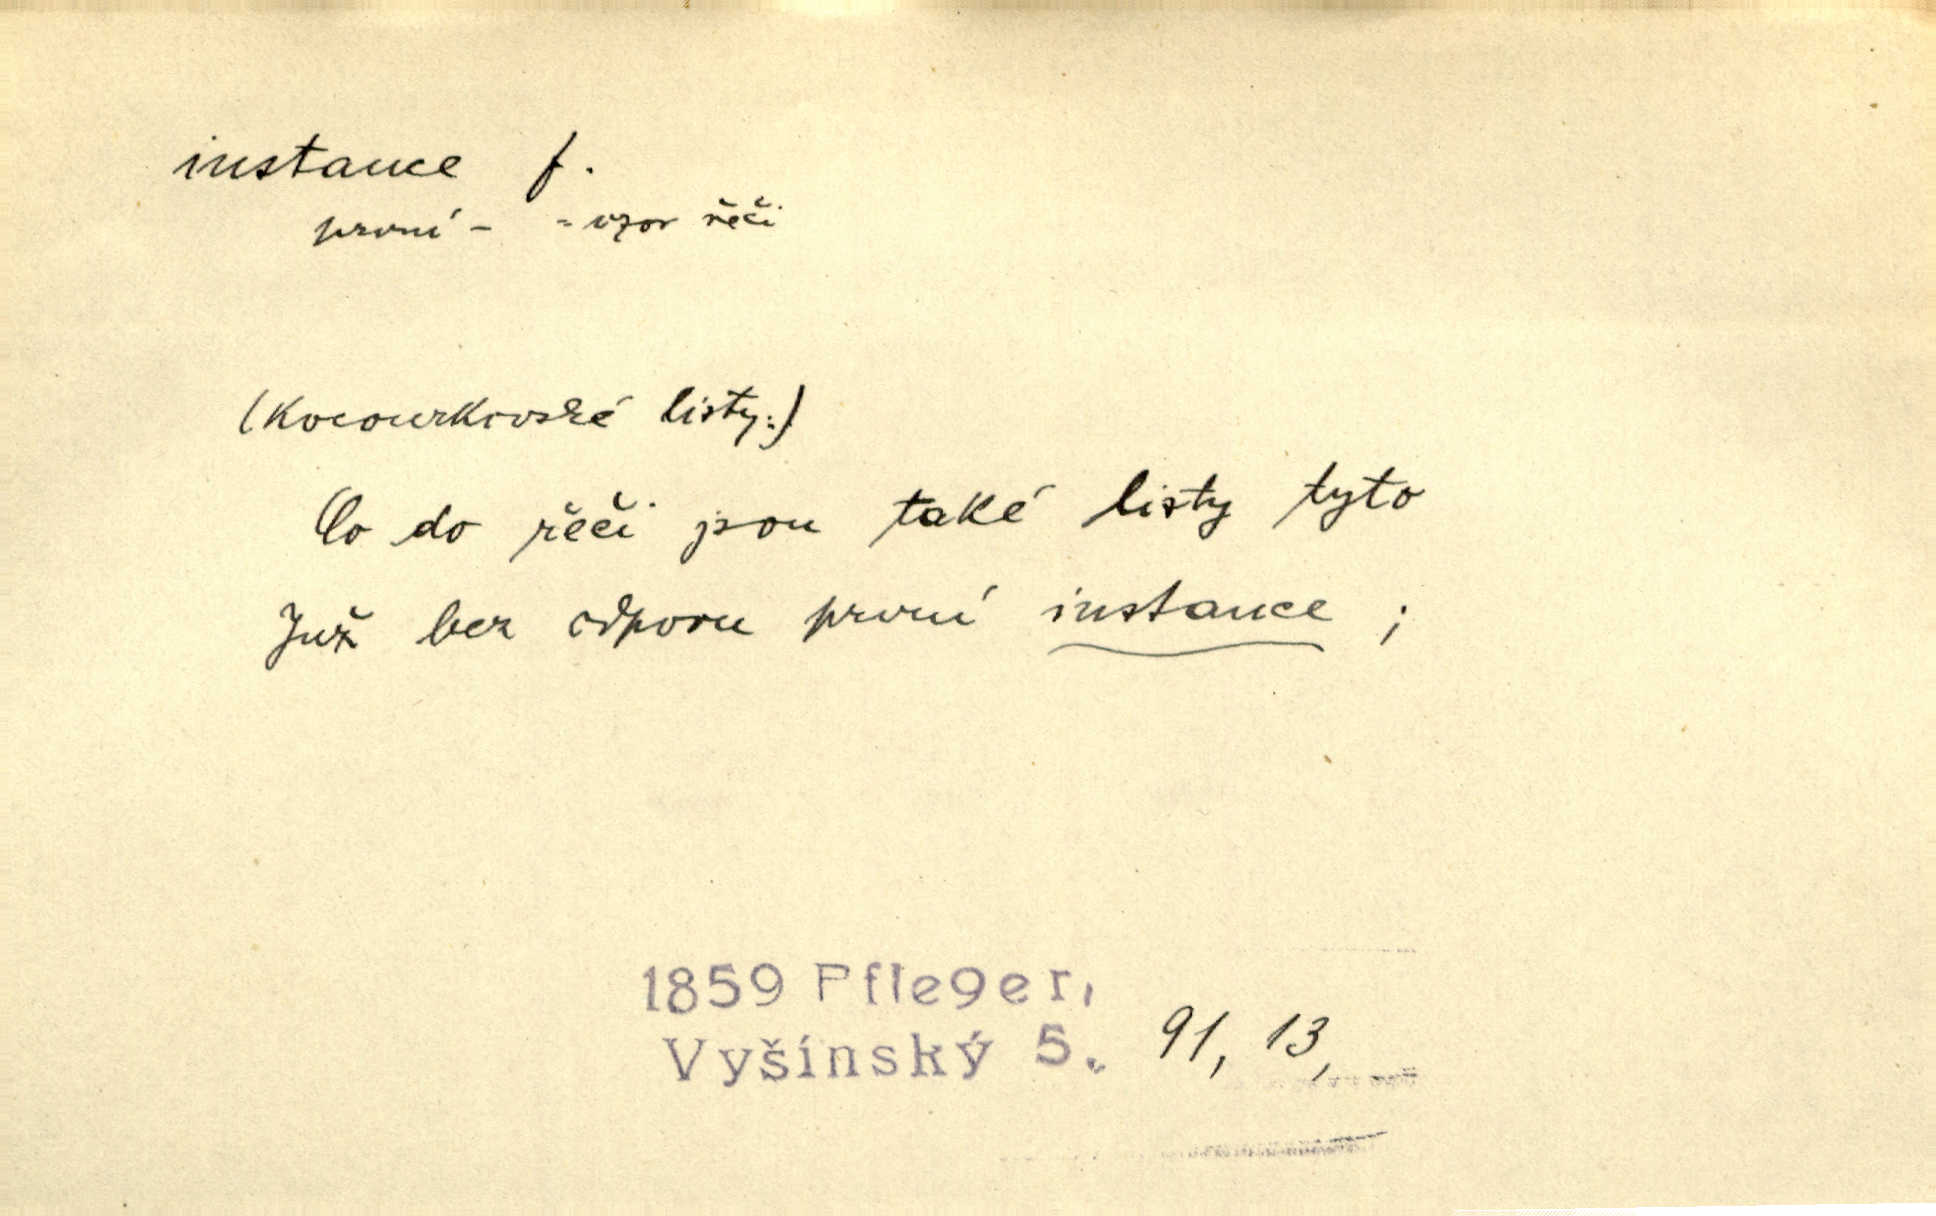 instance f.
první - = vzor řeči
(Kocourkovské listy:)
Co do řeči jsou také listy tyto
Juž bez odporu první instance ;
1859 Pfleger,
Vyšínský 5. 91, 13,